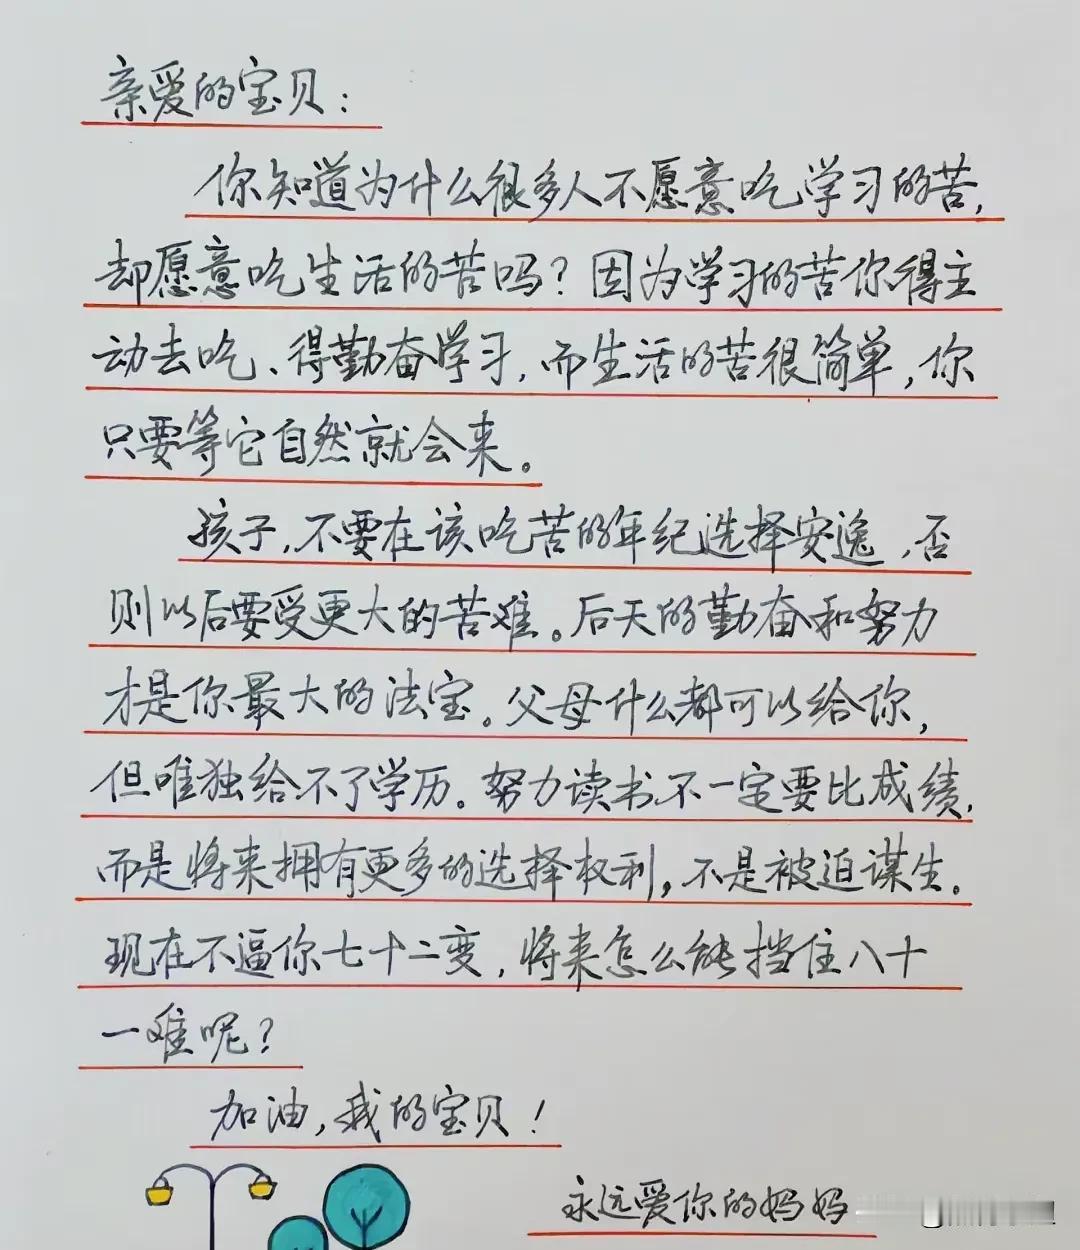 亲爱的宝贝：
你知道为什么很多人不愿意吃学习的苦，
却愿意吃生活的苦吗？因为学习的苦你得主
动去吃、得勤奋学习，而生活的苦很简单，你
只要等它自然就会来。
孩子，不要在该吃苦的年纪选择安逸，否
则以后要受更大的苦难。后天的勤奋和努力
才是你最大的法宝。父母什么都可以给你，
但唯独给不了学历。努力读书不一定要比成绩，
而是将来拥有更多的选择权利，不是被迫谋生。
现在不逼你七十二变，将来怎么能挡住八十
一难呢？
加油，我的宝贝！
永远爱你的妈妈